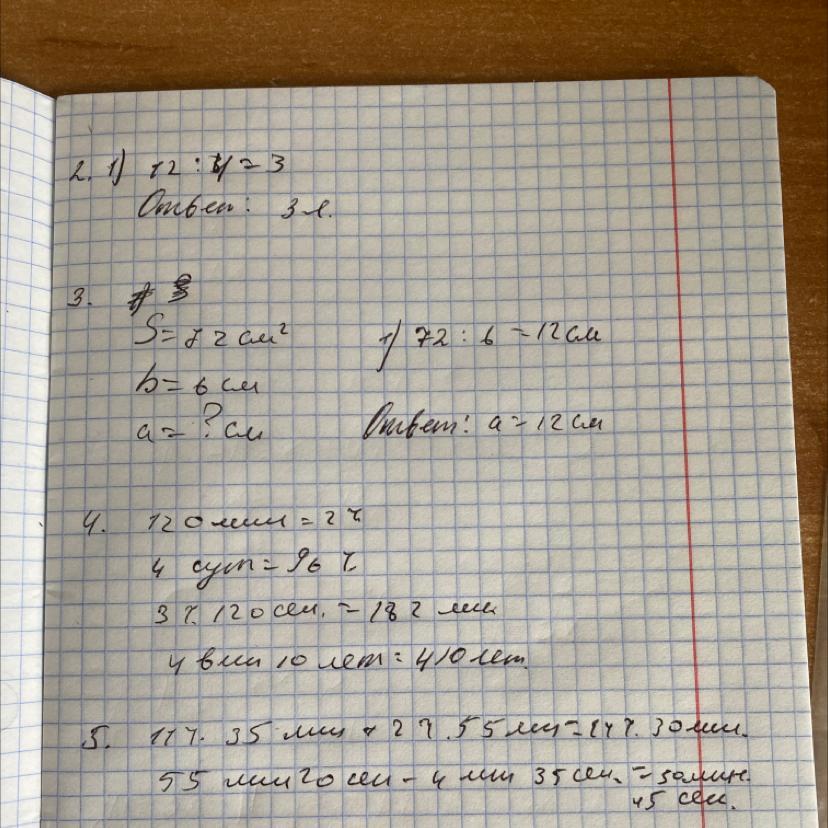 2. 1) 12 : 4 = 3
Ответ: 3 л.
3.
S = 72 см² 1) 72 : 6 = 12 см
b = 6 см
a = ? см Ответ: a = 12 см
4. 120 мин = 2 ч
4 сут = 96 ч
3 ч. 120 сек. = 182 мин
4 век 10 лет = 410 лет.
5. 11 ч. 35 мин + 2 ч. 55 мин = 14 ч. 30 мин.
55 мин 20 сек - 4 мин 35 сек. = 50 мин.
45 сек.